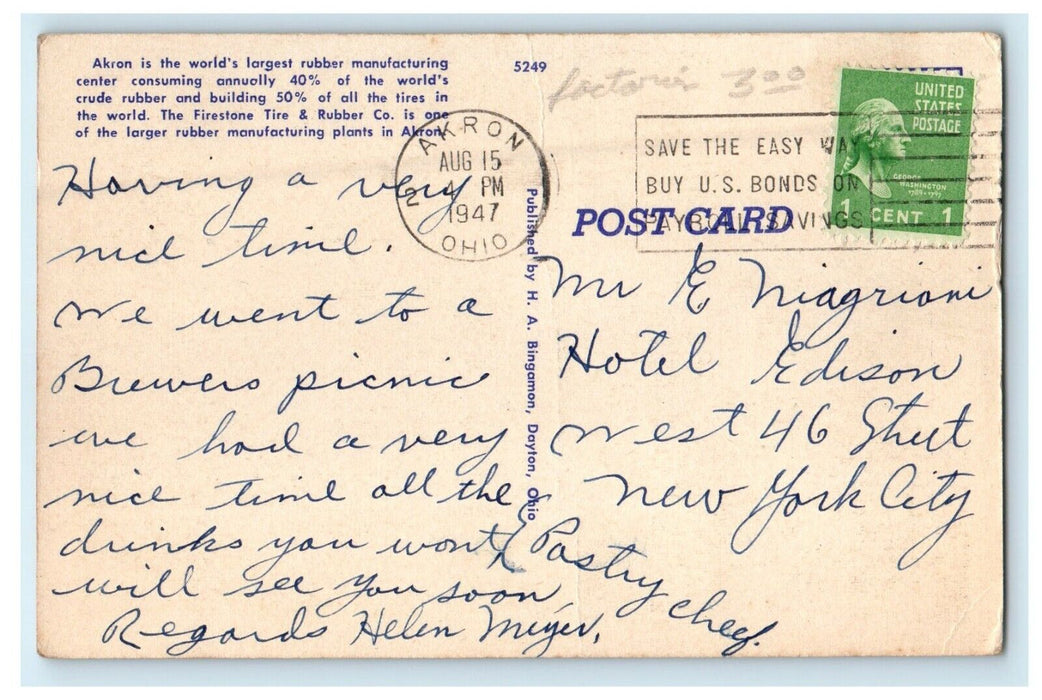 Akron is the world's largest rubber manufacturing
center consuming annually 40% of the world's
crude rubber and building 50% of all the tires in
the world. The Firestone Tire & Rubber Co. is one
of the larger rubber manufacturing plants in Akron.
5249
3.00
AKRON
AUG 15
PM
1947
OHIO
SAVE THE EASY WAY
BUY U.S. BONDS ON
PAYROLL SAVINGS
UNITED
STATES
POSTAGE
GEORGE
WASHINGTON
1789-1797
1 CENT 1
POST CARD
Published by H. A. Bingamon, Dayton, Ohio
Having a very
nice time.
We went to a
Brewers picnic
we had a very
nice time all the
drinks you wont
will see you soon,
Regards Helen Meyer.
Mr E Niagrioni
Hotel Edison
West 46 Street
New York City
Pastry Chef.